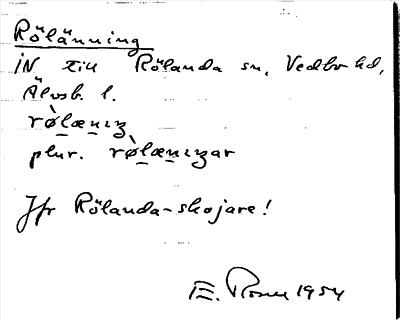 Rölänning
IN till Rölanda sn, Vedbo hd,
Älvsb. l.
rø̀læniŋ
plur. rø̀læniŋar
Jfr Rölanda-skojare!
E. 1954